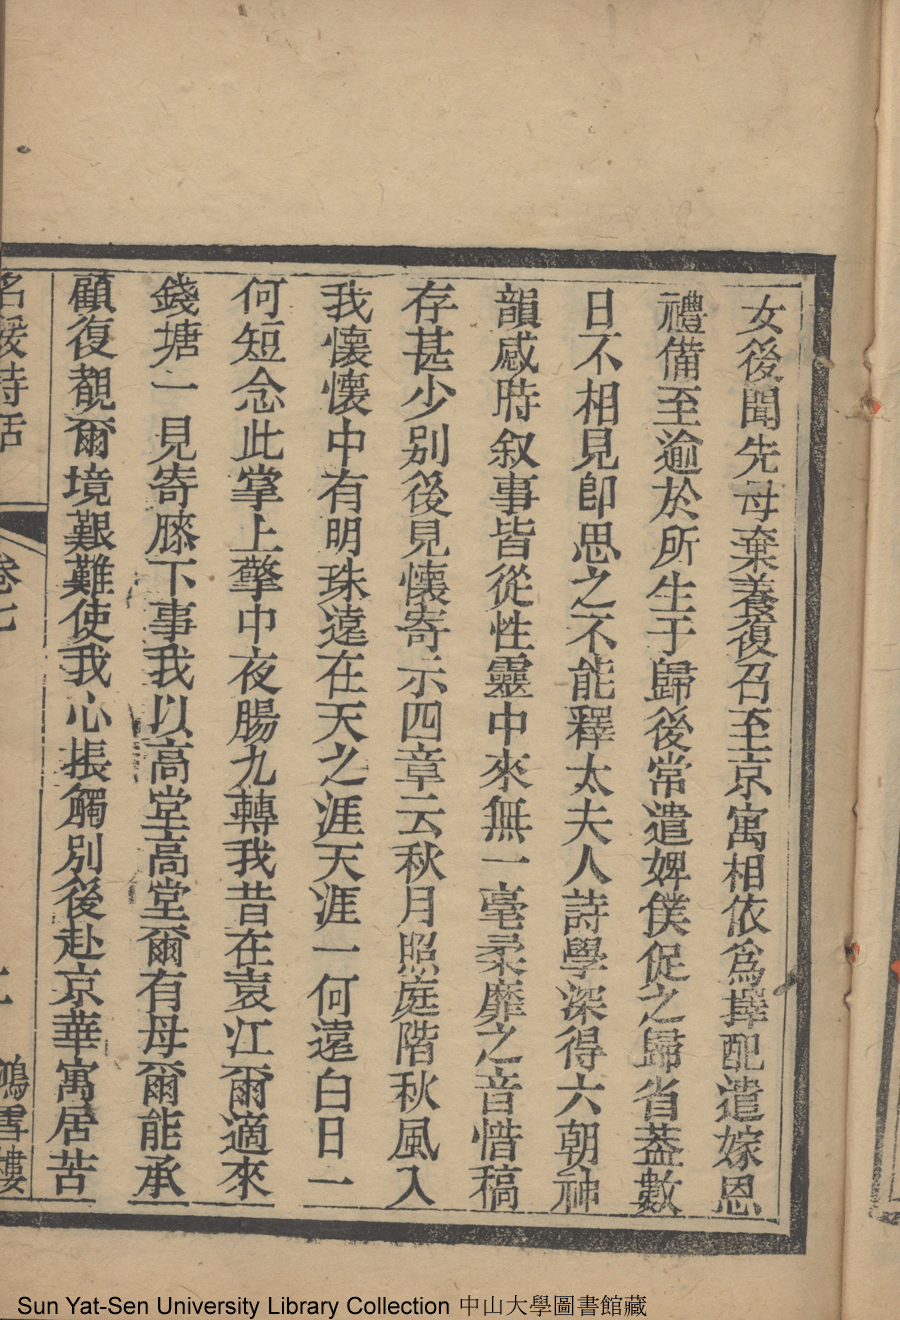 女後聞先母棄養復召至京寓相依爲擇配遣嫁恩
禮備至逾於所生于歸後常遣婢僕促之歸省葢數
日不相見卽思之不能釋太夫人詩學深得六朝神
韻感時叙事皆從性靈中來無一毫柔靡之音惜稿
存甚少别後見懷寄示四章云秋月照庭階秋風入
我懷懷中有明珠遠在天之涯天涯一何遠白日一
何短念此掌上擎中夜腸九轉我昔在袁江爾適來
錢塘一見寄膝下事我以高堂高堂爾有母爾能承
顧復覩爾境艱難使我心振觸別後赴京華寓居苦
名媛詩話 卷七 鴻雪樓
Sun Yat-Sen University Library Collection 中山大學圖書館藏